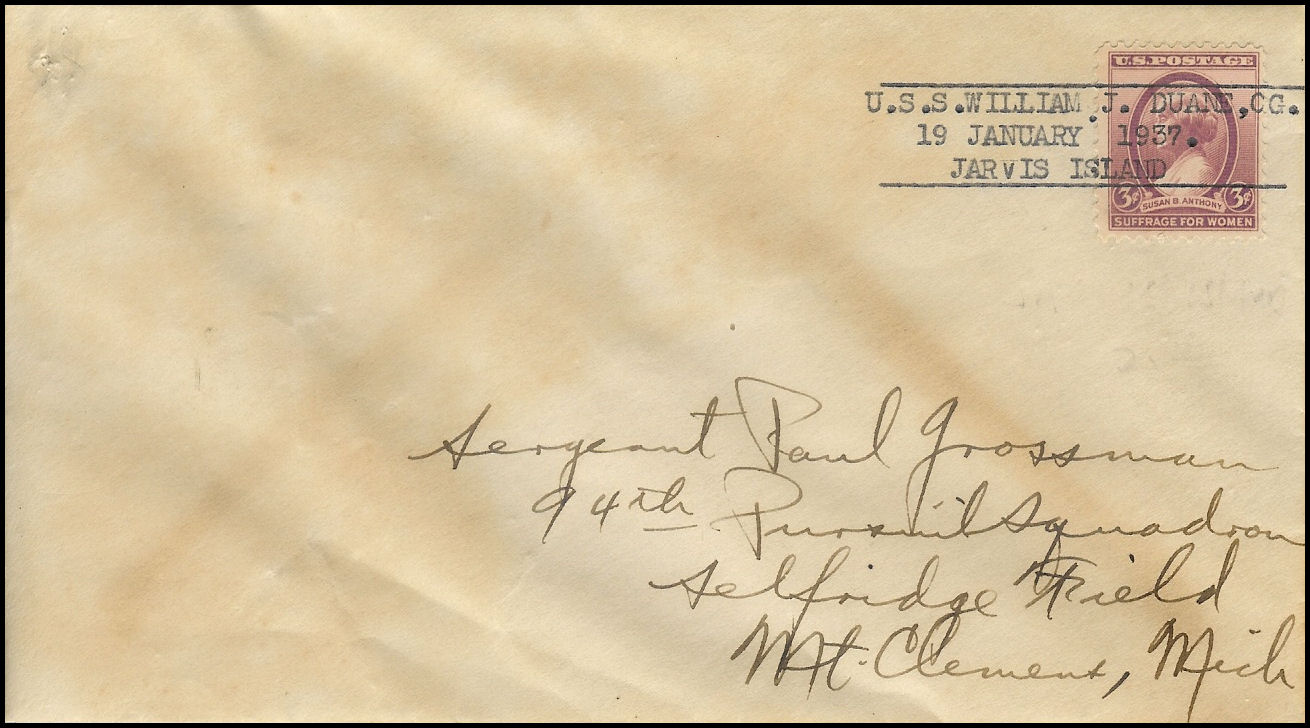 U.S. POSTAGE
U.S.S. WILLIAM J. DUANE, CG.
19 JANUARY 1937.
JARVIS ISLAND
3¢ SUSAN B. ANTHONY 3¢
SUFFRAGE FOR WOMEN
Sergeant Paul Grossman
94th Pursuit Squadron
Selfridge Field
Mt. Clemens, Mich